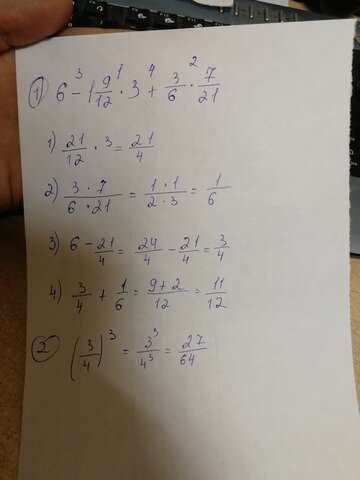 ① 6 -³ 1 9/12 ·¹ 3 +⁴ 3/6 ·² 7/21
1) 21/12 · 3 = 21/4
2) 3 · 7 / 6 · 21 = 1 · 1 / 2 · 3 = 1/6
3) 6 - 21/4 = 24/4 - 21/4 = 3/4
4) 3/4 + 1/6 = 9 + 2 / 12 = 11/12
② (3/4)³ = 3³/4³ = 27/64